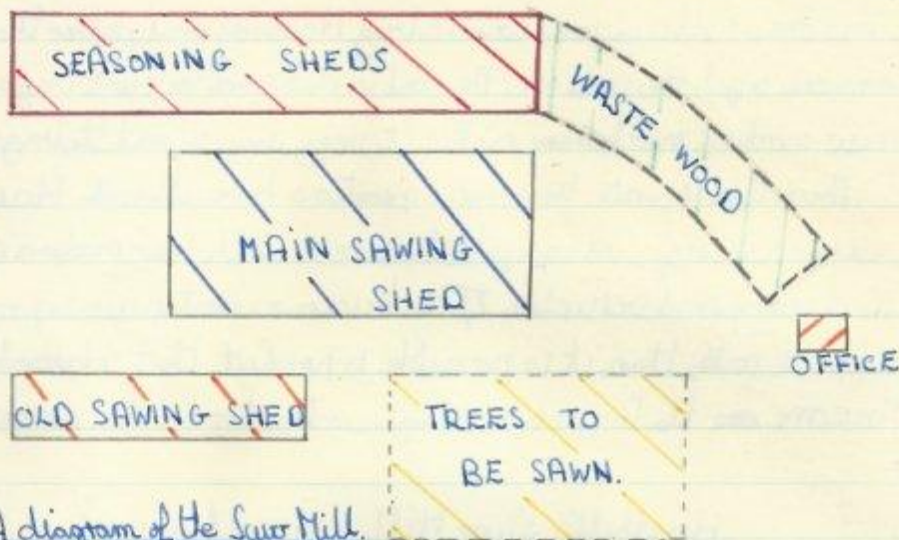 SEASONING SHEDS
WASTE
WOOD
MAIN SAWING
SHED
OFFICE
OLD SAWING SHED
TREES TO
BE SAWN.
A diagram of the Saw Mill.